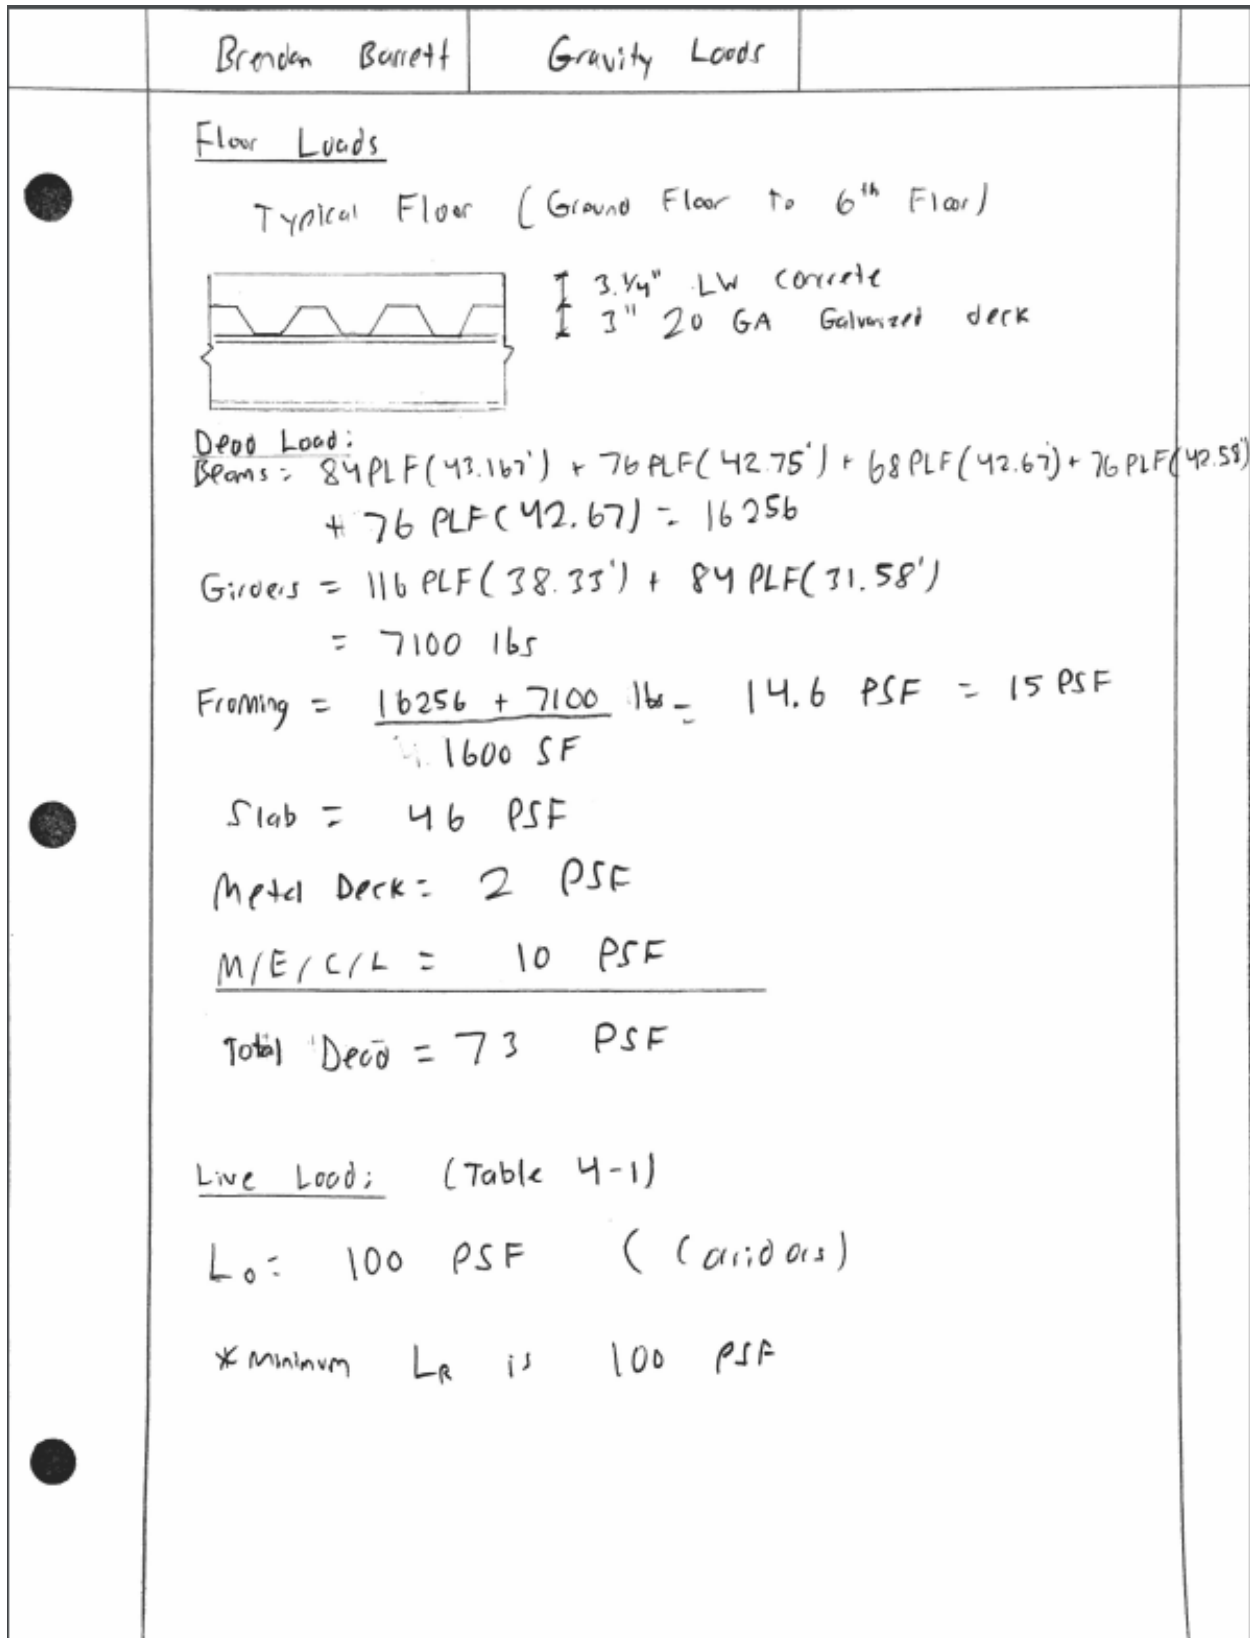 Brendan Barrett
Gravity Loads
Floor Loads
Typical Floor (Ground Floor to 6th Floor)
3 1/4" LW concrete
3" 20 GA Galvanized deck
Dead Load:
Beams = 84 PLF(43.167') + 76 PLF(42.75') + 68 PLF(42.67) + 76 PLF(42.58')
+ 76 PLF(42.67) = 16256
Girders = 116 PLF(38.33') + 84 PLF(31.58')
= 7100 lbs
Framing = 16256 + 7100 lbs = 14.6 PSF = 15 PSF
1600 SF
Slab = 46 PSF
Metal Deck = 2 PSF
M/E/C/L = 10 PSF
Total Dead = 73 PSF
Live Load: (Table 4-1)
Lo = 100 PSF (Corridors)
* Minimum LR is 100 PSF